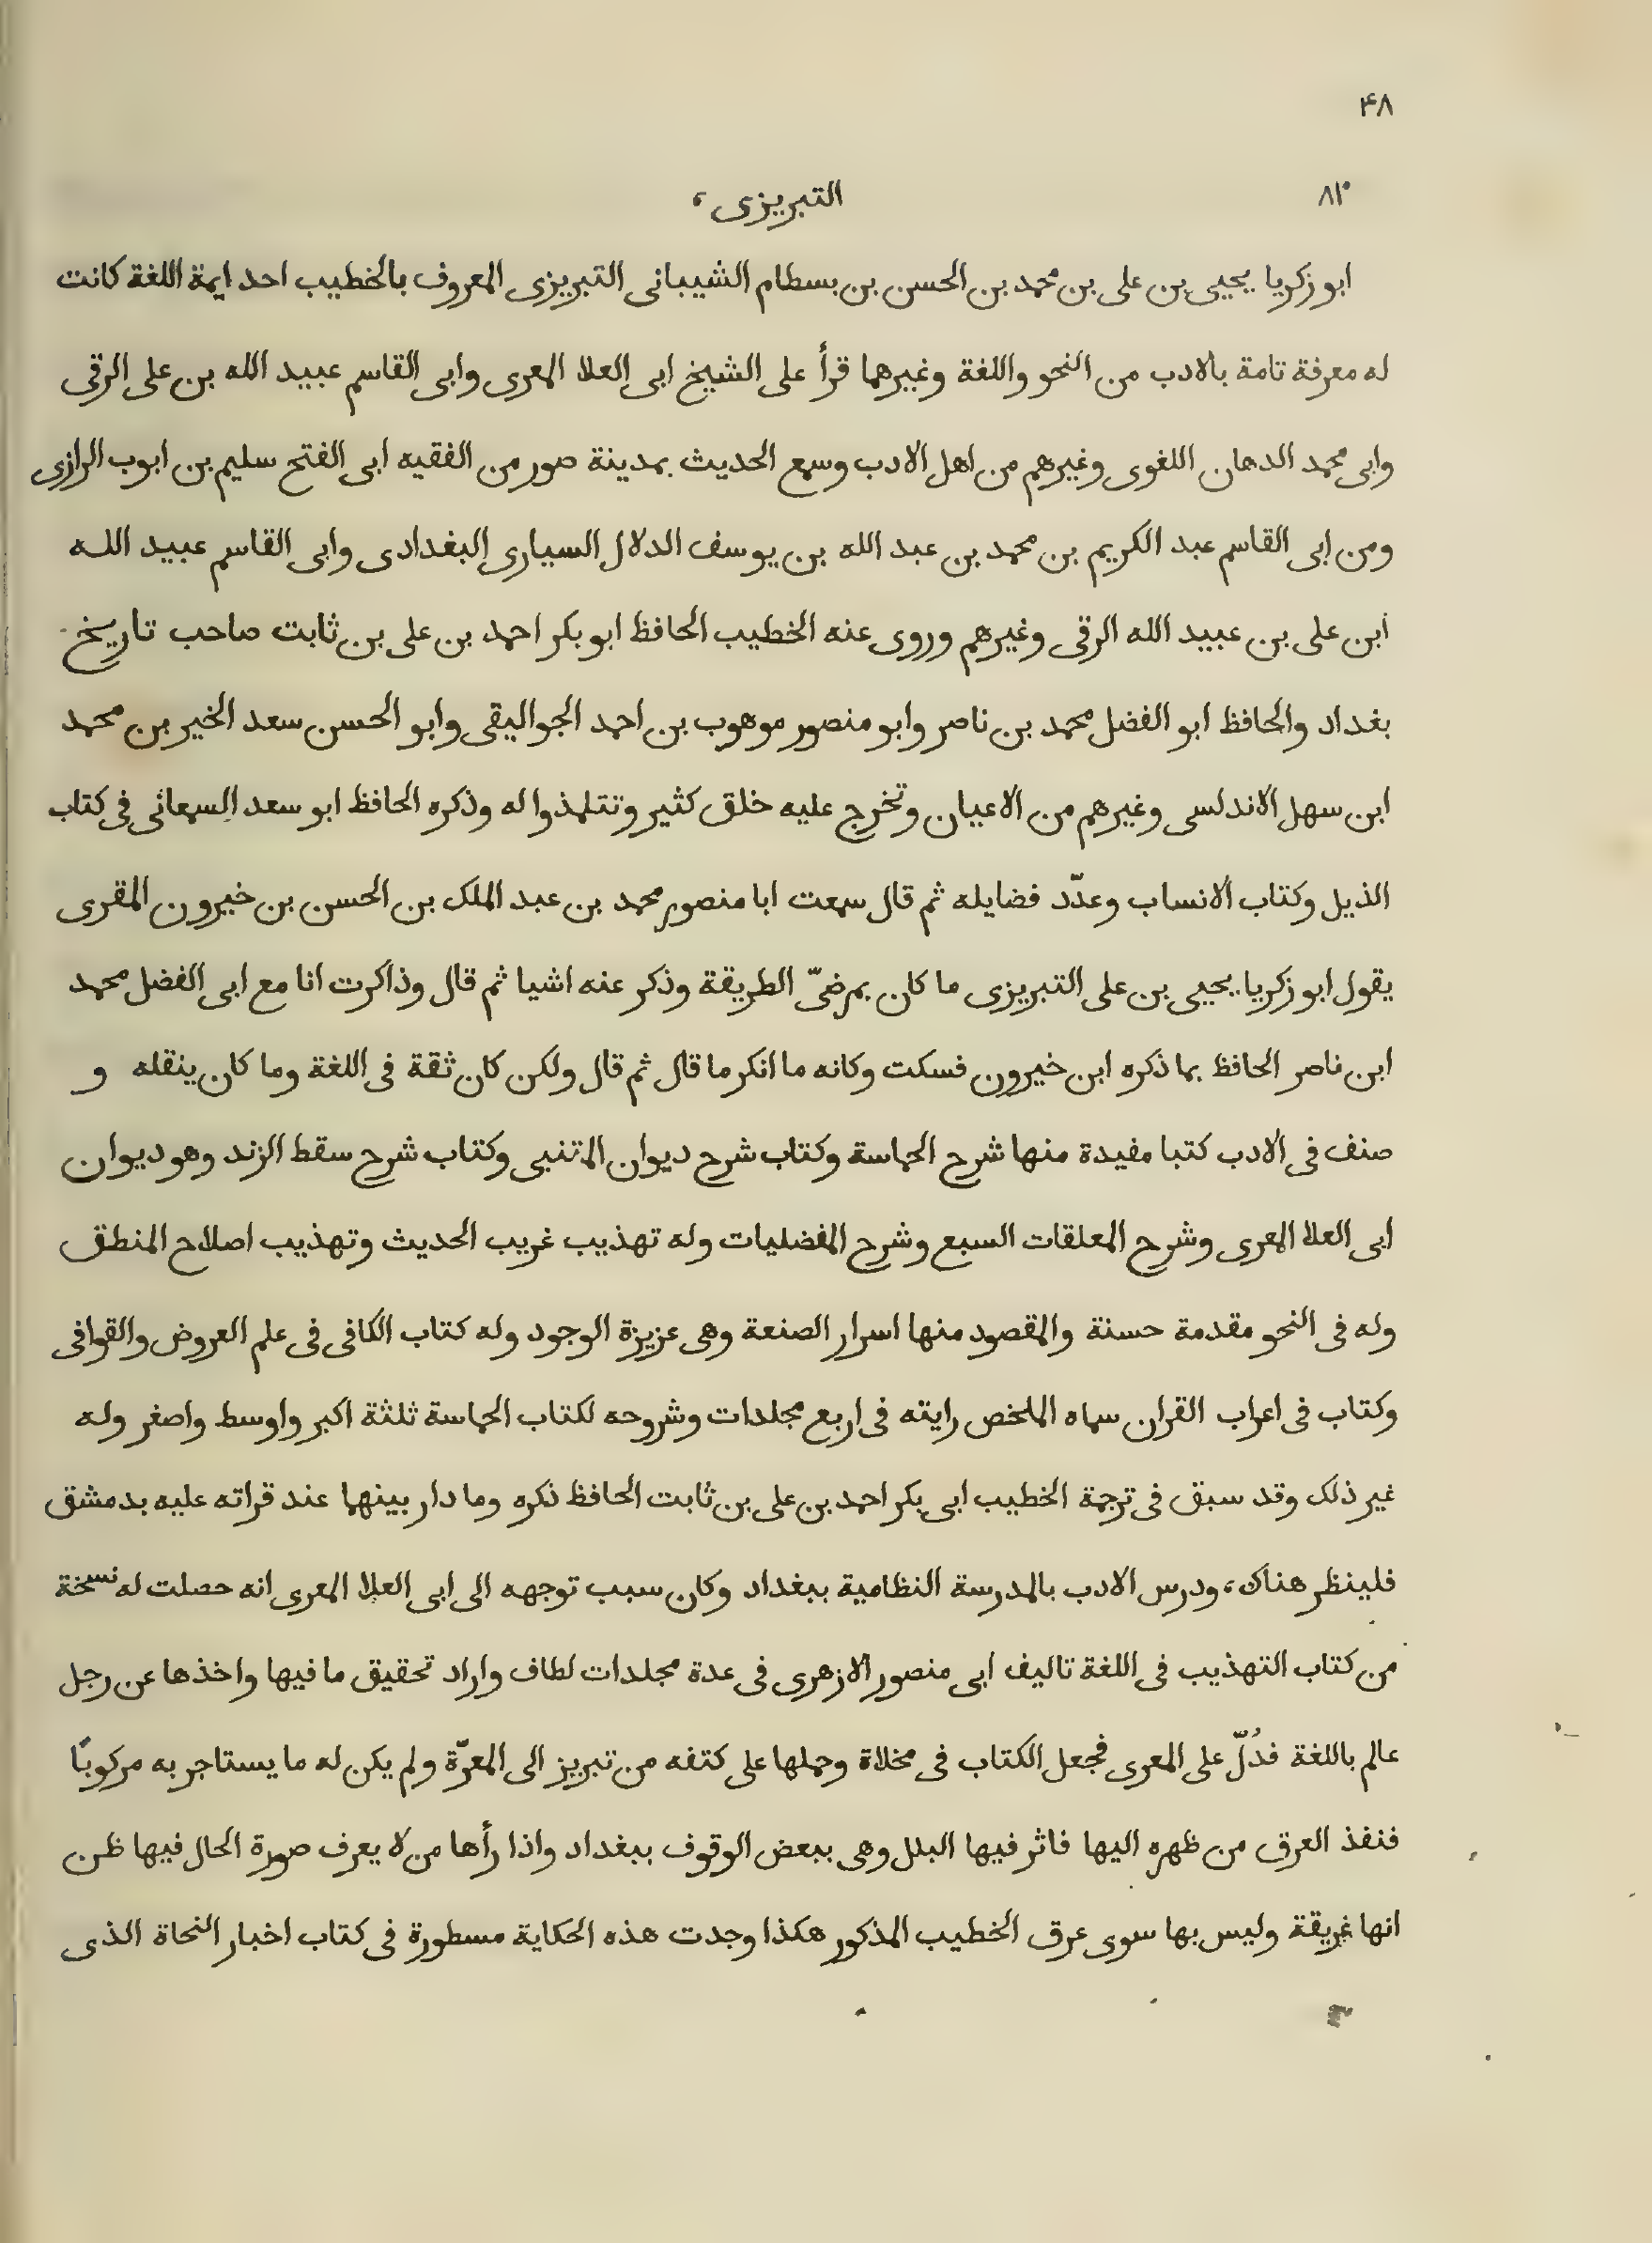 ۴۸
۸۱۰ التبريزى ،
ابو زكريا يحيى بن على بن محمد بن الحسن بن بسطام الشيبانى التبريزى المعروف بالخطيب احد ايمة اللغة كانت
له معرفة تامة بالادب من النحو واللغة وغيرهما قرأ على الشيخ ابى العلا المعرى وابى القاسم عبيد الله بن على الرقى
وابى محمد الدهان اللغوى وغيرهم من اهل الادب وسمع الحديث بمدينة صور من الفقيه ابى الفتح سليم بن ايوب الرازى
ومن ابى القاسم عبد الكريم بن محمد بن عبد الله بن يوسف الدلال السيارى البغدادى وابى القاسم عبيد الله
ابن على بن عبيد الله الرقى وغيرهم وروى عنه الخطيب الحافظ ابو بكر احمد بن على بن ثابت صاحب تاريخ
بغداد والحافظ ابو الفضل محمد بن ناصر وابو منصور موهوب بن احمد الجواليقى وابو الحسن سعد الخير بن محمد
ابن سهل الاندلسى وغيرهم من الاعيان وتخرج عليه خلق كثير وتتلمذوا له وذكره الحافظ ابو سعد السمعانى فى كتاب
الذيل وكتاب الانساب وعدّد فضايله ثم قال سمعت ابا منصور محمد بن عبد الملك بن الحسن بن خيرون المقرى
يقول ابو زكريا يحيى بن على التبريزى ما كان بمرضىّ الطريقة وذكر عنه اشيا ثم قال وذاكرت انا مع ابى الفضل محمد
ابن ناصر الحافظ بما ذكره ابن خيرون فسكت وكانه ما انكر ما قال ثم قال ولكن كان ثقة فى اللغة وما كان ينقله و
صنف فى الادب كتبا مفيدة منها شرح الحماسة وكتاب شرح ديوان المتنبى وكتاب شرح سقط الزند وهو ديوان
ابى العلا المعرى وشرح المعلقات السبع وشرح المفضليات وله تهذيب غريب الحديث وتهذيب اصلاح المنطق
وله فى النحو مقدمة حسنة والمقصود منها اسرار الصنعة وهى عزيزة الوجود وله كتاب الكافى فى علم العروض والقوافى
وكتاب فى اعراب القران سماه الملخص رايته فى اربع مجلدات وشروحه لكتاب الحماسة ثلثة اكبر واوسط واصغر وله
غير ذلك وقد سبق فى ترجمة الخطيب ابى بكر احمد بن على بن ثابت الحافظ ذكره وما دار بينهما عند قراته عليه بدمشق
فلينظر هناك ، ودرس الادب بالمدرسة النظامية ببغداد وكان سبب توجهه الى ابى العلا المعرى انه حصلت له نسخة
من كتاب التهذيب فى اللغة تاليف ابى منصور الازهرى فى عدة مجلدات لطاف واراد تحقيق ما فيها واخذها عن رجل
عالم باللغة فدُلّ على المعرى فجعل الكتاب فى مخلاة وحملها على كتفه من تبريز الى المعرّة ولم يكن له ما يستاجر به مركوبًا
فنفذ العرق من ظهره اليها فاثر فيها البلل وهى ببعض الوقوف ببغداد واذا رأها من لا يعرف صورة الحال فيها ظن
انها غريقة وليس بها سوى عرق الخطيب المذكور هكذا وجدت هذه الحكاية مسطورة فى كتاب اخبار النحاة الذى